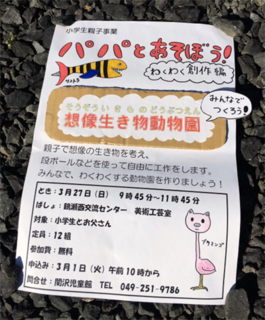 小学生親子事業
パパとあそぼう!
わくわく創作編
みんなで
つくろう!
そうぞういきものどうぶつえん
想像生き物動物園
親子で想像の生き物を考え、
段ボールなどを使って自由に工作をします。
みんなで、わくわくする動物園を作りましょう!
とき:3月27日(日) 9時45分~11時45分
ばしょ:鶴瀬西交流センター 美術工芸室
対象:小学生とお父さん
定員:12組
参加費:無料
申込み:3月1日(火)午前10時から
問合せ:関沢児童館 TEL 049-251-9786
ブタミンゴ